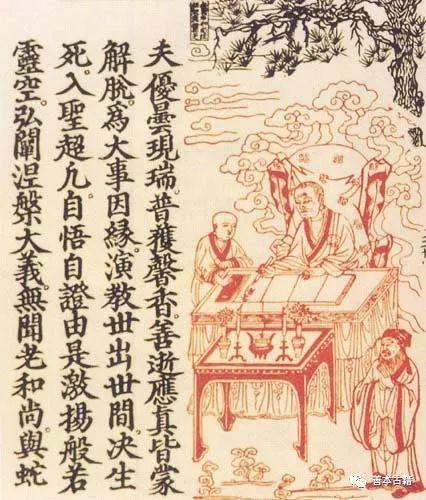 夫優曇現瑞。普獲馨香。善逝應真。皆蒙
解脫。爲大事因緣。演教丗出世間。决生
死。入聖超凡。自悟自證由是激揚般若
靈空。弘闡涅槃大義。無聞老和尚與蛇
善本古籍